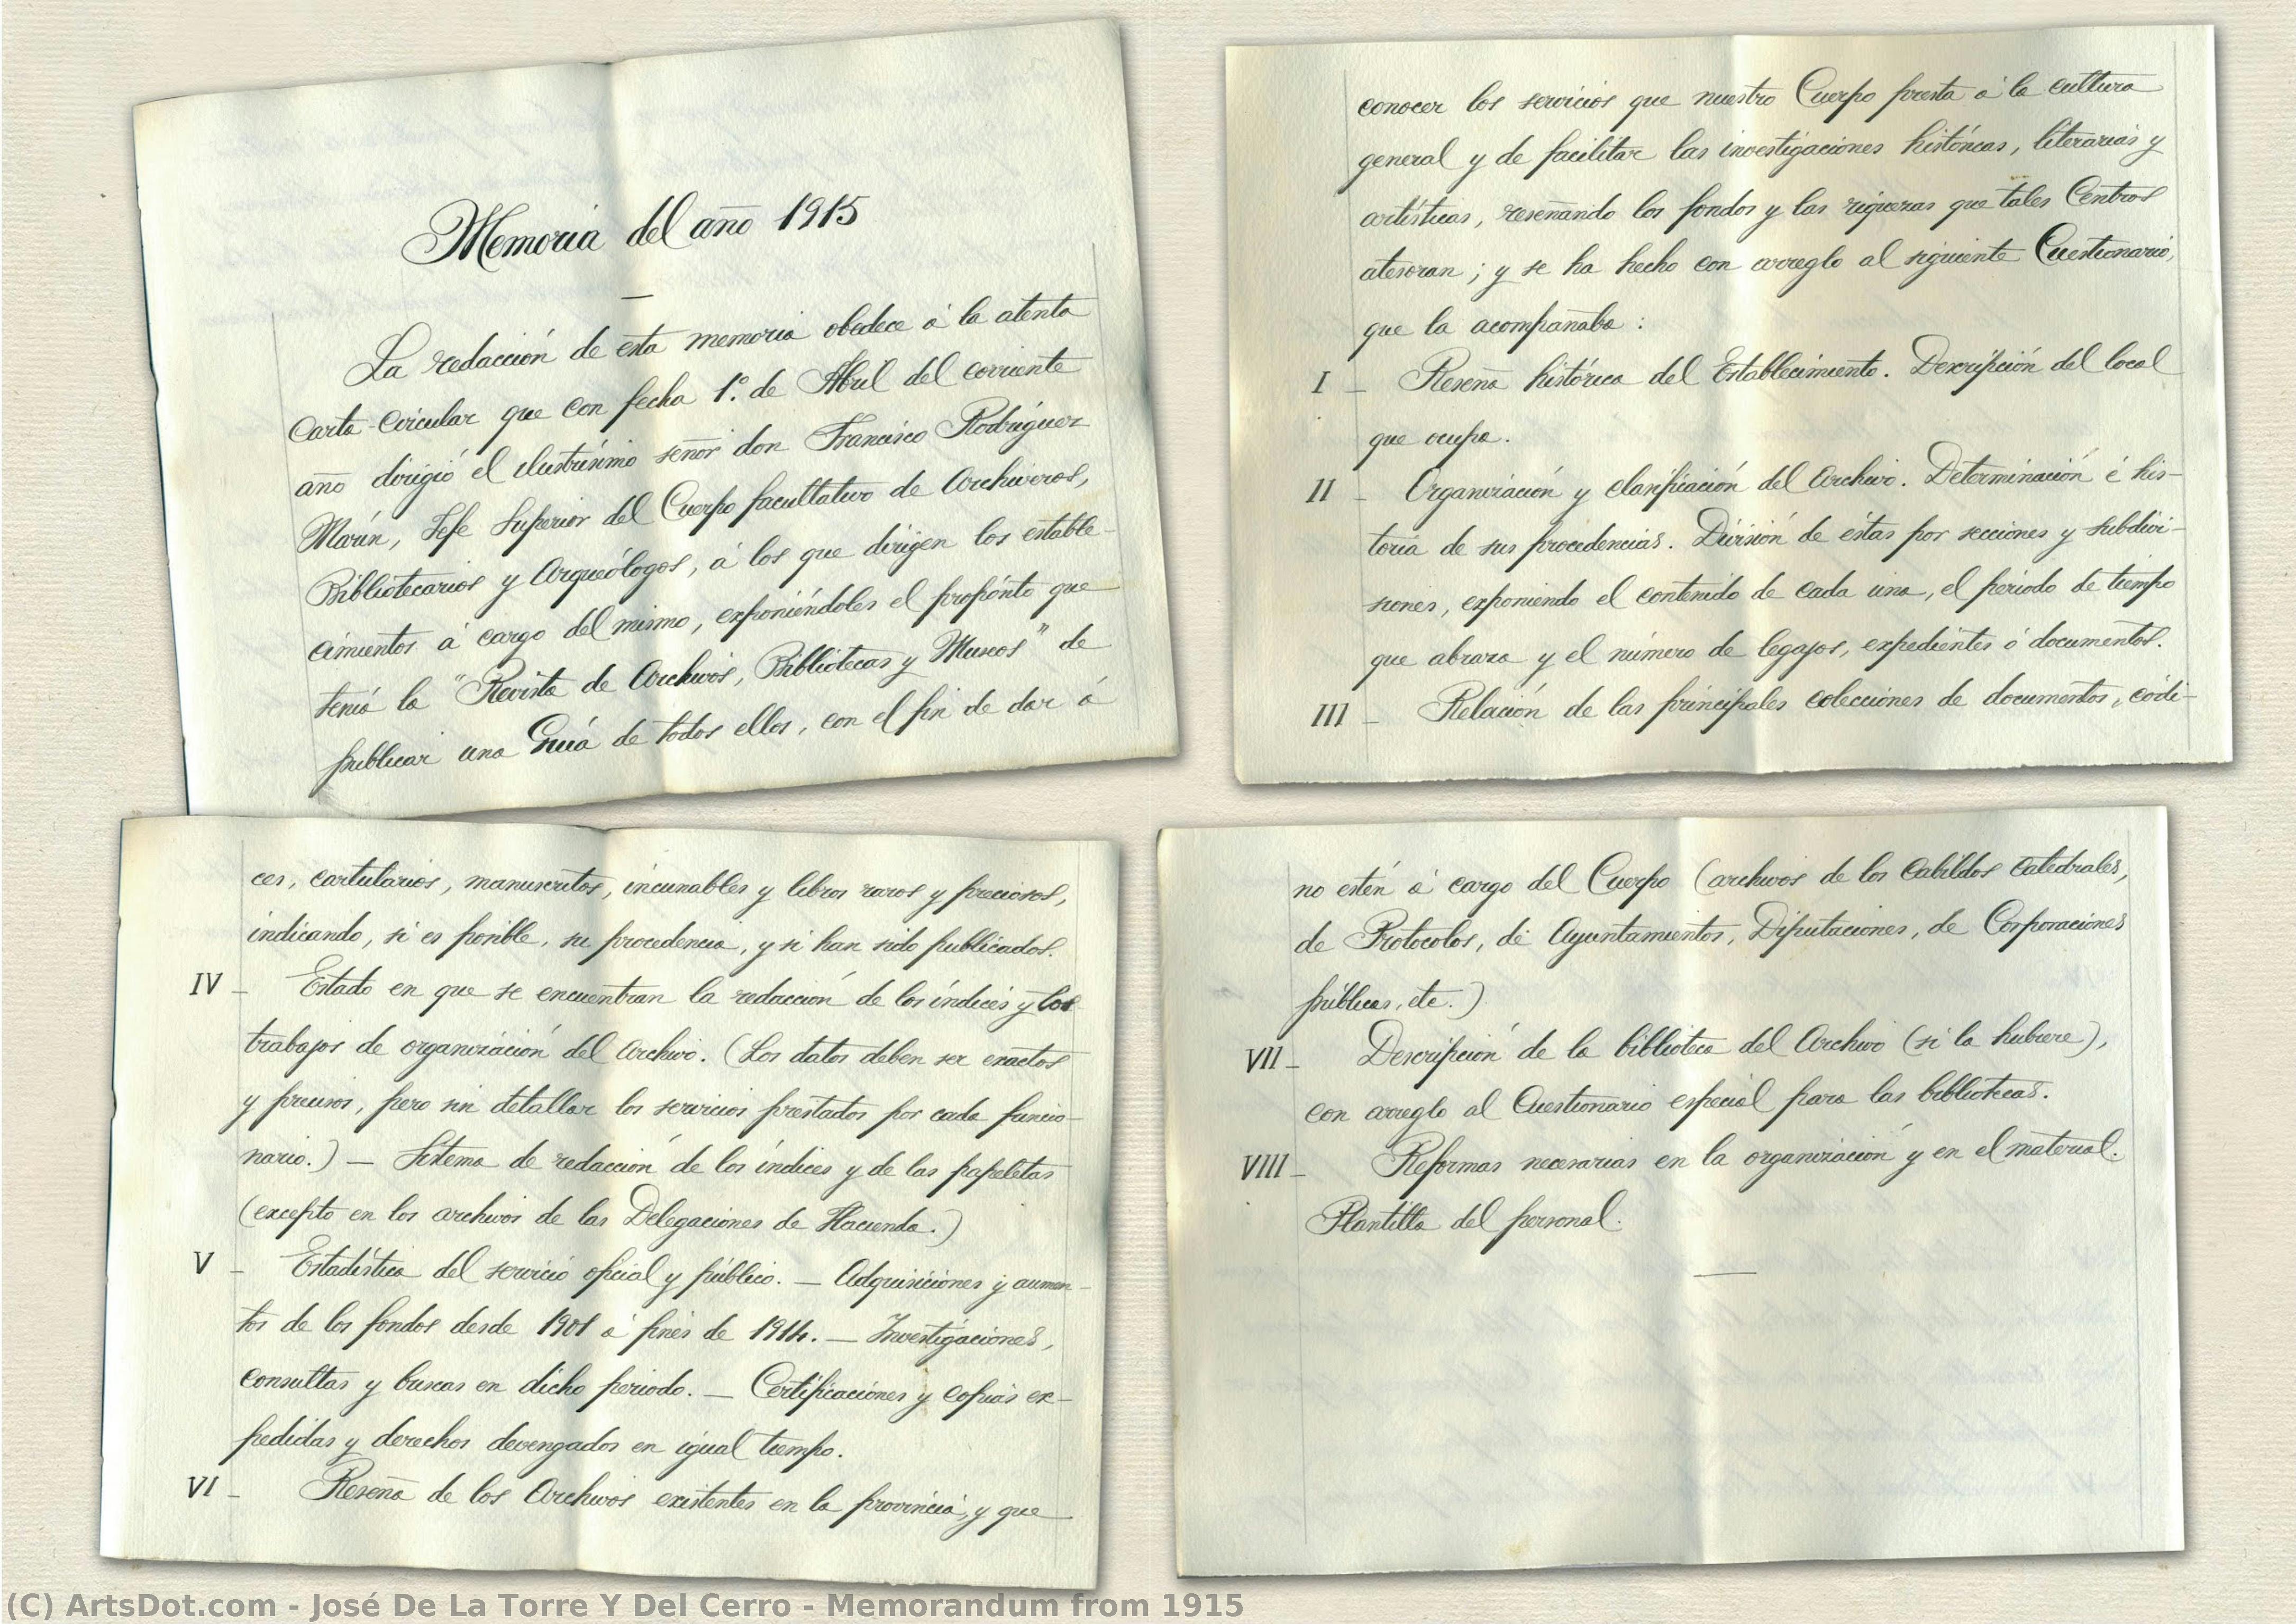 Memoria del año 1915
La redacción de esta memoria obedece á la atenta
carta-circular que con fecha 1º. de Abril del corriente
año dirigió el ilustrísimo señor don Francisco Rodríguez
Marín, Jefe Superior del Cuerpo facultativo de Archiveros,
Bibliotecarios y Arqueólogos, á los que dirigen los estable-
cimientos á cargo del mismo, exponiéndoles el propósito que
tenía la "Revista de Archivos, Bibliotecas y Museos" de
publicar una Guía de todos ellos, con el fin de dar á
conocer los servicios que nuestro Cuerpo presta á la cultura
general y de facilitar las investigaciones históricas, literarias y
artísticas, reseñando los fondos y las riquezas que tales Centros
atesoran; y se ha hecho con arreglo al siguiente Cuestionario,
que la acompañaba:
I - Reseña histórica del Establecimiento. Descripción del local
que ocupa.
II - Organización y clasificación del Archivo. Determinación é his-
toria de sus procedencias. División de éstas por secciones y subdivi-
siones, exponiendo el contenido de cada una, el período de tiempo
que abraza y el número de legajos, expedientes ó documentos.
III - Relación de las principales colecciones de documentos, códi-
ces, cartularios, manuscritos, incunables y libros raros y preciosos,
indicando, si es posible, su procedencia, y si han sido publicados.
IV - Estado en que se encuentran la redacción de los índices y los
trabajos de organización del Archivo. (Los datos deben ser exactos
y precisos, pero sin detallar los servicios prestados por cada funcio-
nario.) — Sistema de redacción de los índices y de las papeletas
(excepto en los archivos de las Delegaciones de Hacienda.)
V - Estadística del servicio oficial y público. — Adquisiciones y aumen-
tos de los fondos desde 1901 á fines de 1914. — Investigaciones,
consultas y buscas en dicho periodo. — Certificaciones y copias ex-
pedidas y derechos devengados en igual tiempo.
VI - Reseña de los Archivos existentes en la provincia, y que
no estén á cargo del Cuerpo (archivos de los Cabildos Catedrales,
de Protocolos, de Ayuntamientos, Diputaciones, de Corporaciones
públicas, etc.)
VII - Descripción de la biblioteca del Archivo (si la hubiere),
con arreglo al Cuestionario especial para las bibliotecas.
VIII - Reformas necesarias en la organización y en el material.
Plantilla del personal.
(C) ArtsDot.com - José De La Torre Y Del Cerro - Memorandum from 1915